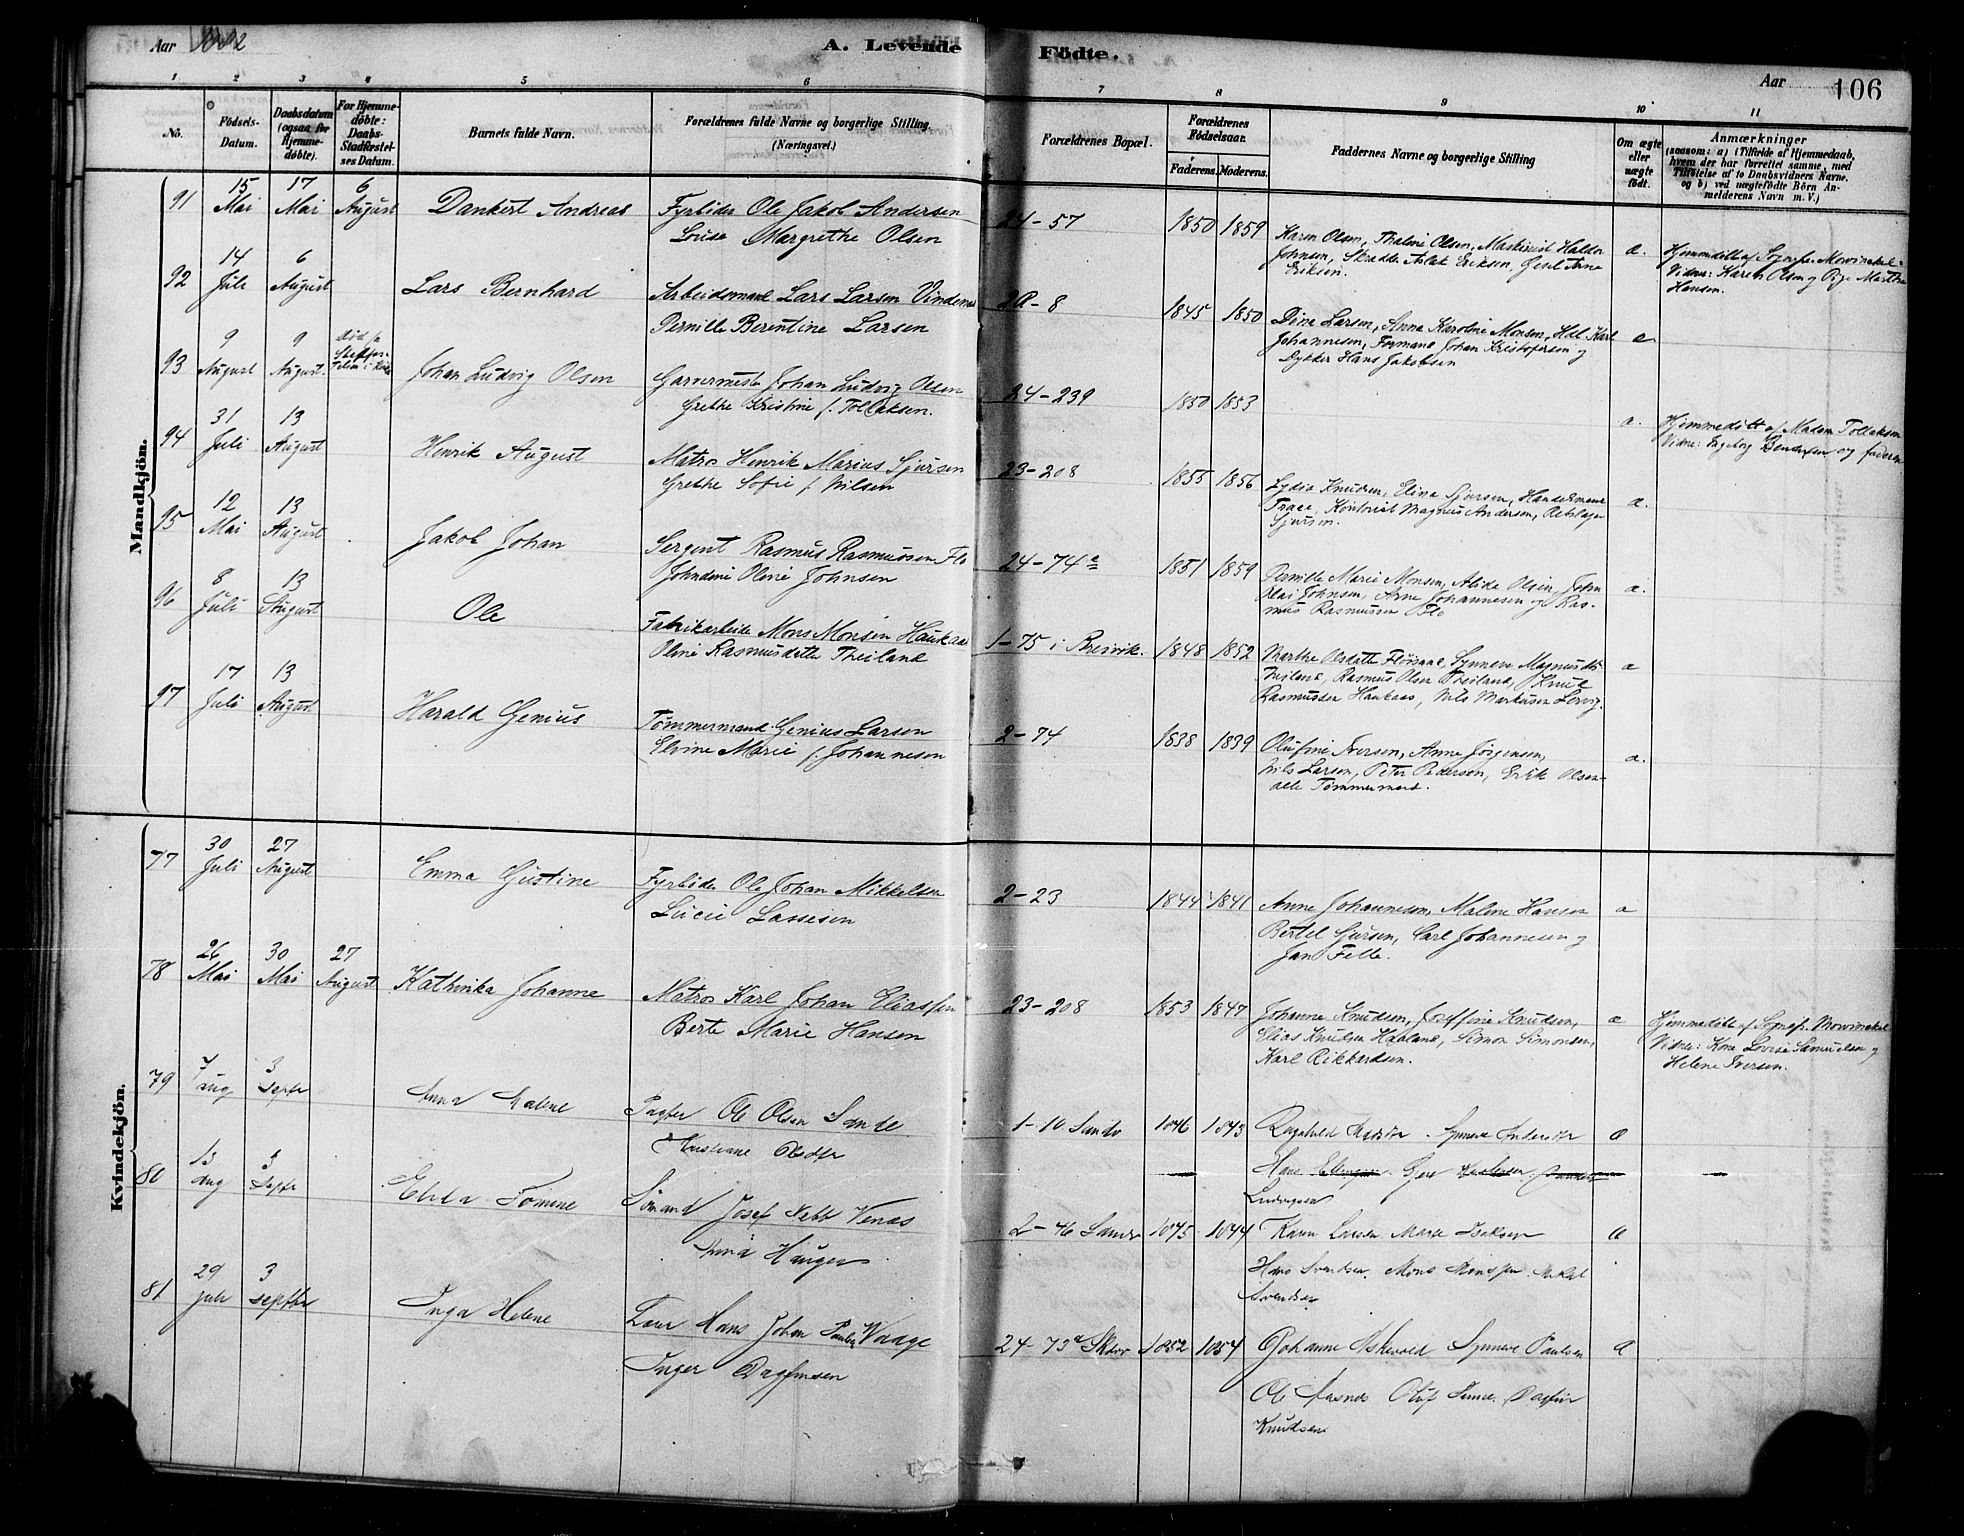 Aar 1882
A. Levende Födte.
Aar 106
1 2 3 4 5 6 7 8 9 10 11
No.
Födsels-
Datum.
Daabsdatum
(ogsaa for
Hjemme-
döbte).
For Hjemme-
döbte:
Daabs-
Stadfæstel-
ses Datum.
Barnets fulde Navn.
Forældrenes fulde Navne og borgerlige Stilling.
(Næringsvei.)
Forældrenes Bopæl.
Forældrenes
Födselsaar.
Faderens. Moderens.
Faddernes Navne og borgerlige Stilling
Om ægte
eller
uægte
födt.
Anmærkninger
(saasom: a) i Tilfælde af Hjemmedaab,
hvem der har forrettet samme, med
Tilföielse af to Daabsvidners Navne.
og b) ved uægtefödte Börn An-
melderens Navn m. V.)
Mandkjön.
91 15 Mai 17 Mai 6 August Dankert Andreas Fyrböder Ole Jakob Andersen
Louise Margrethe Olsen
24-57 1850 1859 Karen Olsen, Thaline Olsen, Maskinist Haldor
Johnsen, Skrædder Aslak Eriksen, Gesel Arne
Eriksen.
a.
Hjemmedöbt af Sognepr. Mowinckel.
Vidner: Karen Olsen og Pige Marthe
Hansen.
92 14 Juli 6 August Lars Bernhard Arbeidsmand Lars Larsen Vindenes
Pernille Berentine Larsen
2a-8 1845 1850 Dina Larsen, Anna Karoline Monsen, Hdl. Karl
Johannesen, Formand Johan Kristofersen og
Dykker Hans Jakobsen
a
93 9 August 9 August. död för
Stadfæs-
telsen i Kirke
Johan Ludvig Olsen Garvermester Johan Ludvig Olsen
Grethe Kristine f. Tollaksen.
24-239 1850 1853 a.
Hjemmedöbt af Madam Tollaksen
Vidne: Ingeborg Bendixsen og faderen
94 31 Juli 13 August Henrik August Matros Henrik Marius Sjursen
Grethe Sofie f. Nilsen
23-208 1855 1856 Lydia Knudsen, Elina Sjursen, Handelsmand
Traae, Kontorist Magnus Andersen, Rebslager
Sjursen.
a.
95 12 Mai 13 August Jakob Johan Sergent Rasmus Rasmussen Flo
Johndine Oline Johnsen
24-74a 1851 1859 Pernille Marie Monsen, Alida Olsen, John
Olai Johnsen, Arne Johannesen og Ras-
mus Rasmussen Flo
a.
96 8 Juli 13 August Ole Fabrikarbeider Mons Monsen Haukaas
Oline Rasmusdatter Theiland
1-75 i Breivik. 1848 1852 Marthe Olsdatter Flöisand, Synneve Magnusdtr
Theiland, Rasmus Olsen Theiland, Knud
Rasmussen Haukaas, Nils Markusen Lervig.
a
97 17 Juli 13 August Harald Genius Tömmermand Genius Larsen
Elvine Marie f. Johannesen
2-74 1838 1839 Olufine Iversen, Anne Jörgensen,
Nils Larsen, Peter Pedersen, Erik Olsen
alle Tömmermænd.
a.
Kvindekjön.
77 30 Juli 27 August Emma Gustine Fyrböder Ole Johan Mikkelsen
Lucie Lassesen
2-23 1844 1841 Anne Johannesen, Malene Hansen
Bertel Sjursen, Carl Johannesen og
Jan Felle.
a
78 26 Mai 30 Mai 27 August Kathinka Johanne Matros Karl Johan Eliassen
Berte Marie Hansen
23-208 1853 1847 Johanne Knudsen, Josefine Knudsen,
Elias Knudsen Haaland, Simon Simonsen,
Karl Rikkardsen.
a
Hjemmedöbt af Sognepr. Mowinckel
Vidne: Kone Lovise Samuelsen og
Helene Iversen.
79 7 Aug 3 Septbr Anna Malene Ole Olsen Sande
Kristiane Olsdtr
1-10 Sandv 1846 1843 Ragnhild Synneve Andersdtr
Hans
Ludvigsen
a
80 13 Aug 3 Septbr Elida Tomine Sömand Josef Nebb Venaas
Anna Haugen
2-46 Sandv 1845 1844 Karen Larsen Marte Isaksen
Hans Svendsen. Mons Monssen. Mikal
Svendsen
a
81 29 Juli 3 Septbr Inga Helene Hans Johan Paulsen Waage
Inger Dagfinsen
24-73a Skver 1852 1854 Johanne Askevold Synneve Paulsen
Ole Oluf Dagfin
Knudsen
a